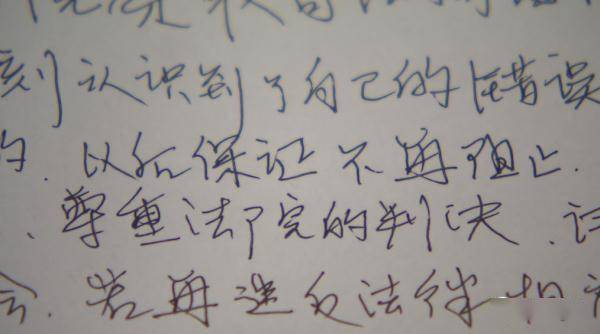 刻认识到了自己的错误
的. 以后保证不再阻止.
. 尊重法院的判决.
会. 若再违反法律